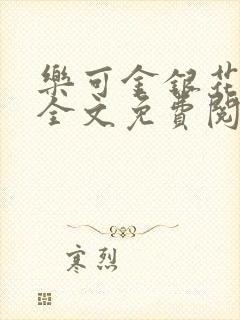 樂可金銀花
全文免費閱
寒烈